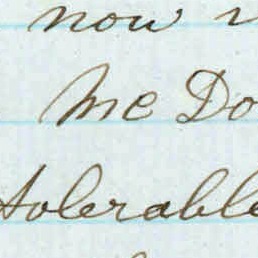 now
me Do
tolerable